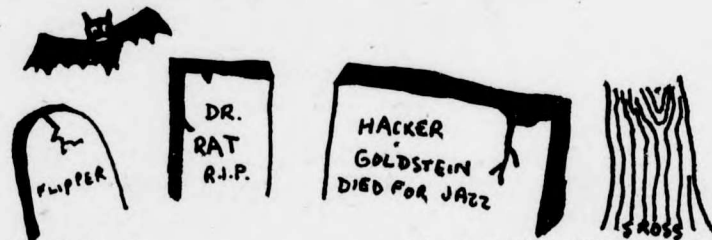 FLIPPER
DR.
RAT
R.I.P.
HACKER
GOLDSTEIN
DIED FOR JAZZ
GROSS